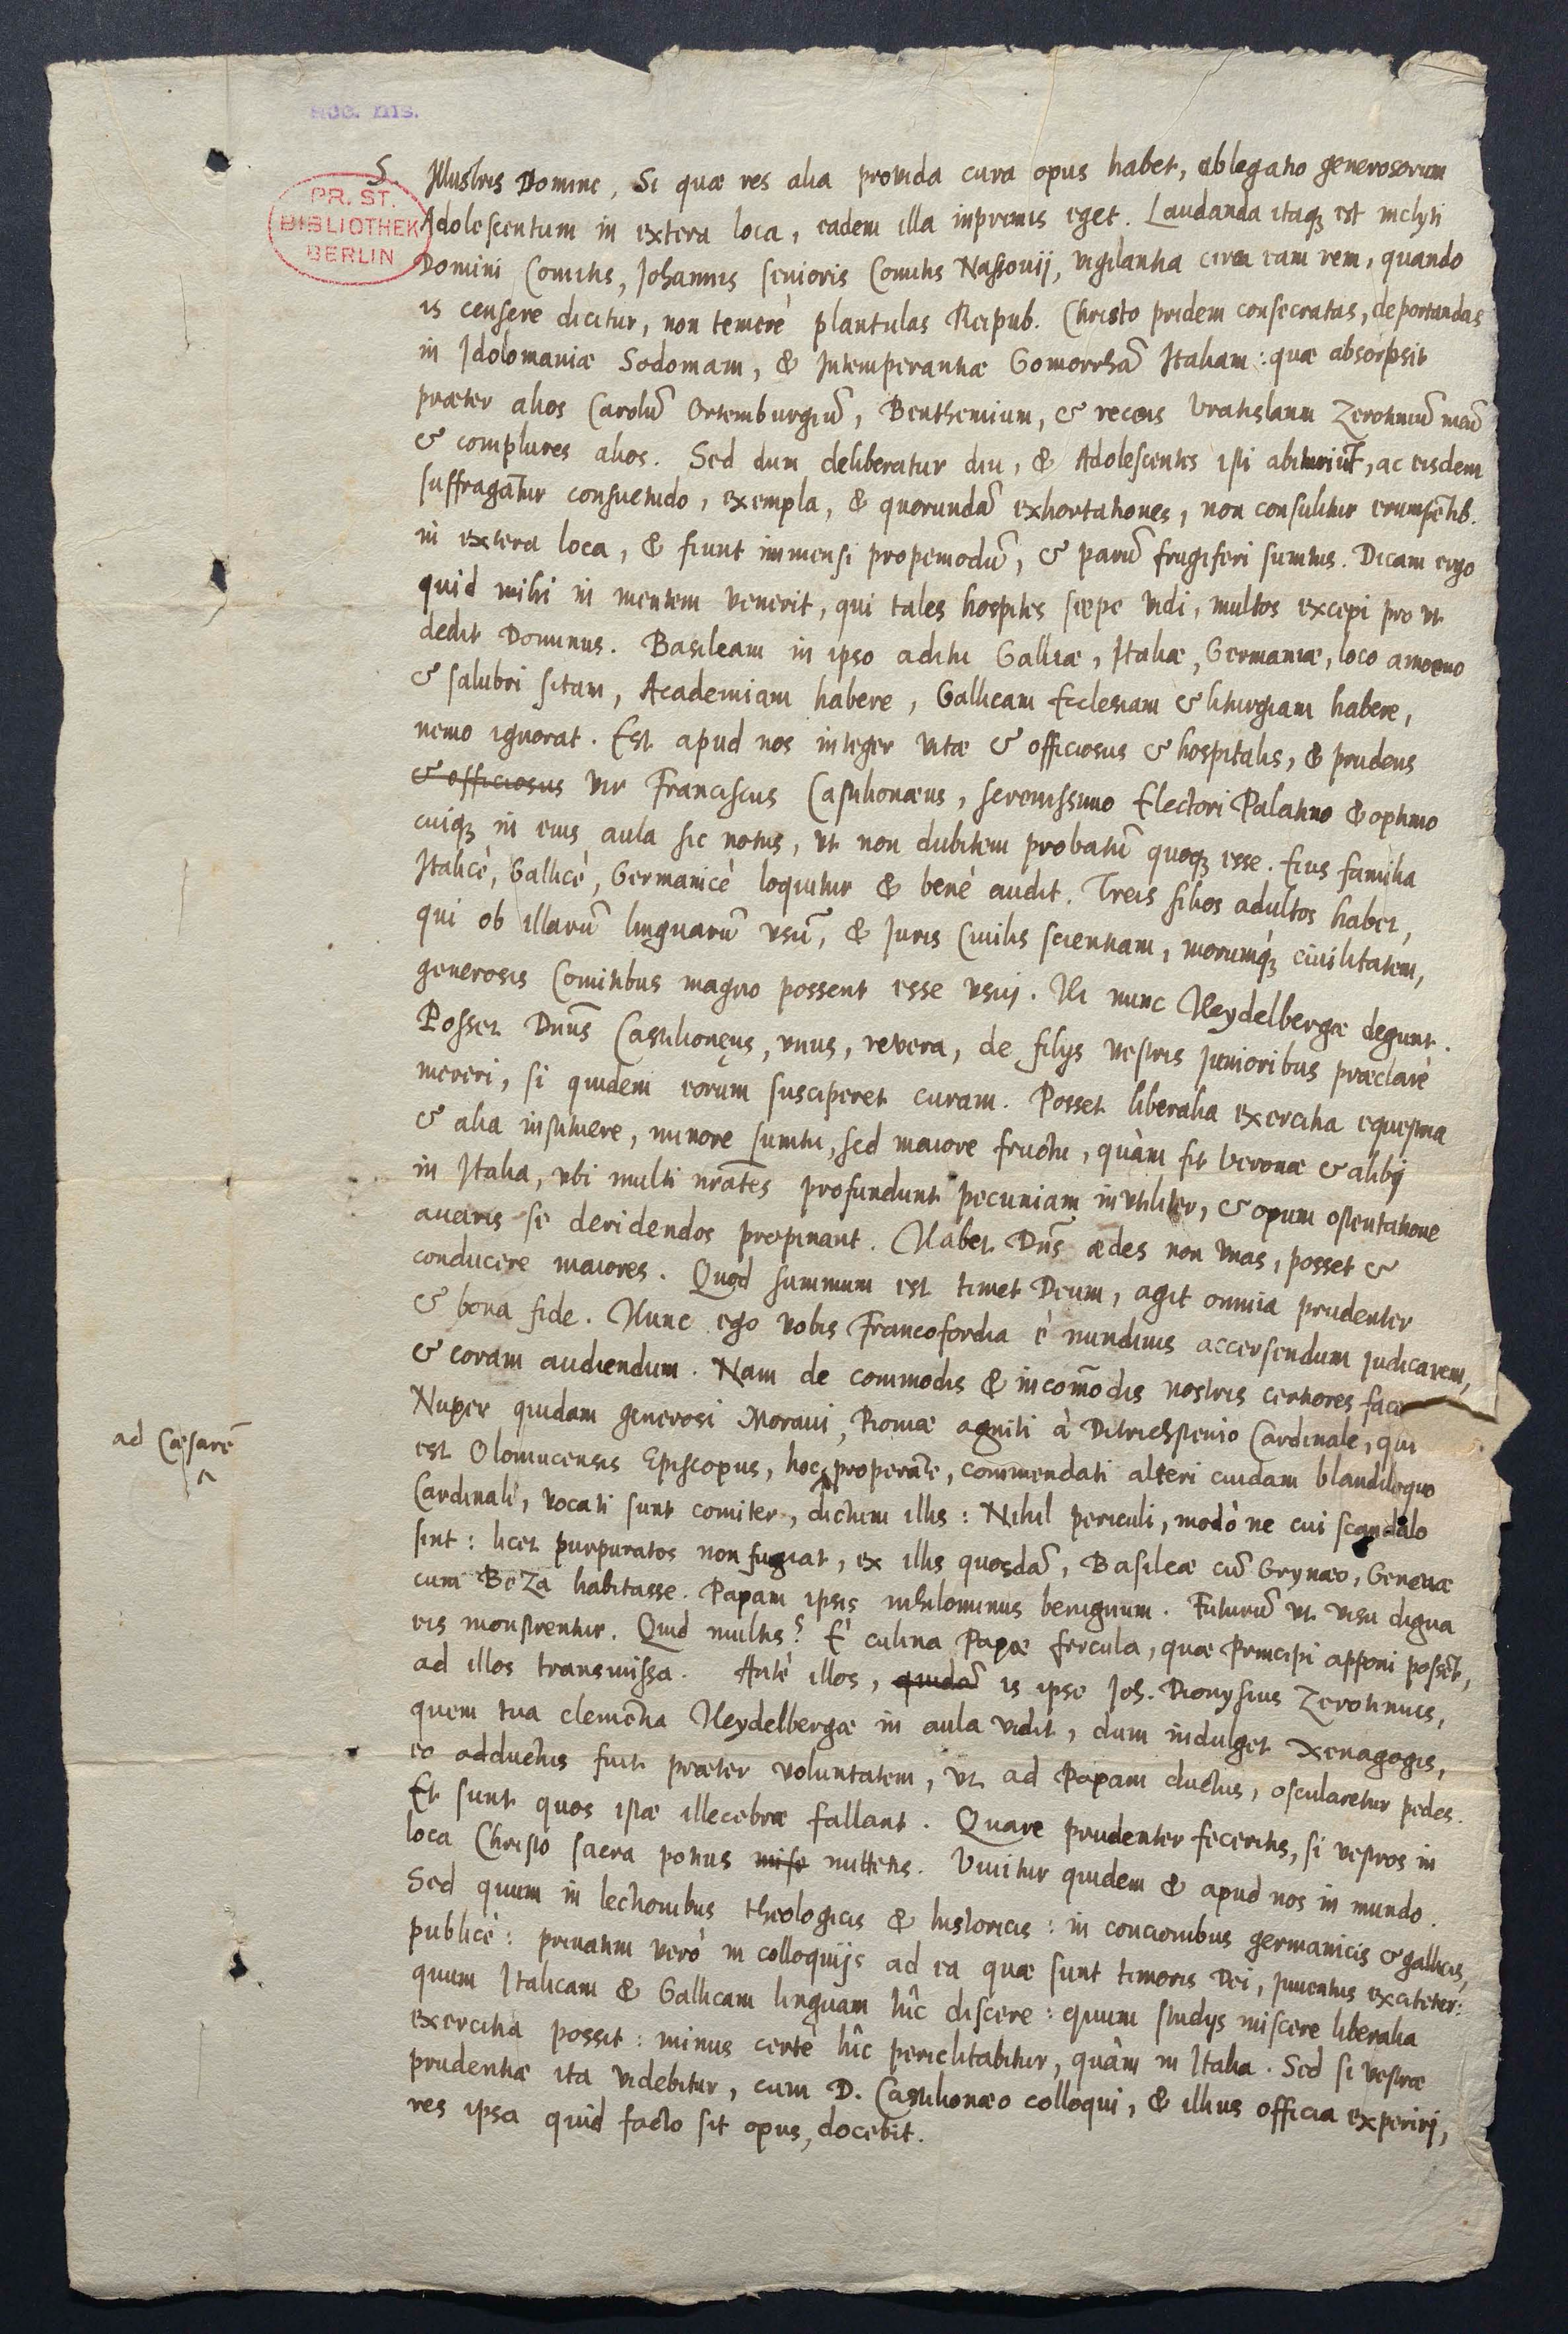 acc. ms.
PR. ST.
BIBLIOTHEK
BERLIN
S. Illustris Domine, Si quæ res alia provida cura opus habet, ablegatio generosorum
Adolescentum in extera loca, eadem illa inprimis eget. Laudanda itaqꝫ est inclyti
Domini Comitis, Johannis senioris Comitis Nassouij, vigilantia circa eam rem, quando
is censere dicitur, non temerè plantulas Reipub. Christo pridem consecratas, deportandas
in Idolomaniæ Sodomam, & Intemperantiæ Gomorrhā Italiam: quæ absorpsit
præter alios Carolū Ortemburgiū, Benthemium, & recens Vratislaum Zerotiniū meū
& complures alios. Sed dum deliberatur diu, & Adolescentes isti abituriūt, ac eisdem
suffragātur consuetudo, exempla, & quorundā exhortationes, non consulitur erumpētib.
in extera loca, & fiunt immensi propemodū, & parū frugiferi sumtus. Dicam ergo
quid mihi in mentem venerit, qui tales hospites sæpe vidi, multos excepi pro vt
dedit Dominus. Basileam in ipso aditu Galliæ, Italiæ, Germaniæ, loco amoeno
& salubri sitam, Academiam habere, Gallicam Ecclesiam & liturgiam habere,
nemo ignorat. Est apud nos integer vitæ & officiosus & hospitalis, & prudens
& officiosus vir Franciscus Castilionæus, serenissimo Electori Palatino & optimo
cuiqꝫ in eius aula sic notus, vt non dubitem probatū quoqꝫ esse. Eius familia
Italicè, Gallicè, Germanicè loquitur & benè audit. Treis filios adultos habet,
qui ob illarū linguarū vsū, & Juris Ciuilis scientiam, morumqꝫ ciuilitatem,
generosis Comitibus magno possent esse vsuj. Ili nunc Heydelbergæ degunt.
Posset Dnūs Castilionęus, vnus, revera, de filijs vestris junioribus præclarè
mereri, si quidem eorum susciperet curam. Posset liberalia exercitia equestria
& alia instituere, minore sumtu, sed maiore fructu, quàm fit Veronæ & alibj
in Italia, vbi multi nrātes profundunt pecuniam invtiliter, & opum ostentatione
auaris se deridendos propinant. Habet Dn̄s ædes non vnas, posset &
conducere maiores. Quod summum est timet Deum, agit omnia prudenter
& bona fide. Hunc ego vobis Francofordia è nundinis accersendum judicarem,
& coram audiendum. Nam de commodis & incōmodis nostris certiores
Nuper quidam generosi Moraui, Romæ agniti à Ditrichstenio Cardinale, qui
ad Cæsarē
est Olomucensis Episcopus, hoc properāte, commendati alteri cuidam blandiloquo
Cardinali, vocati sunt comiter, dictum illis: Nihil periculi, modò ne cui scandalo
sint: licet purpuratos non fugiat, ex illis quosdā, Basileæ cū Grynæo, Geneuæ
cum Beza habitasse. Papam ipsis nihilominus benignum. Futurū vt visu digna
eis monstrentur. Quid multis? È culina Papæ fercula, quæ Principi apponi possēt,
ad illos transmissa. Antè illos, quidā is ipse Joh. Dionysius Zerotinius,
quem tua clemētia Heydelbergæ in aula vidit, dum indulget Xenagogis,
eo adductus fuit præter voluntatem, vt ad Papam ductus, oscularetur pedes.
Et sunt quos istæ illecebræ fallant. Quare prudenter feceritis, si vestros in
loca Christo sacra potius mise mittetis. Viuitur quidem & apud nos in mundo.
Sed quum in lectionibus theologicis & historicis: in concionibus germanicis & gallicis,
publicè: priuatim verò in colloquijs ad ea quæ sunt timoris Dei, juuentus excitetur:
quum Italicam & Gallicam linguam hîc discere: quum studijs miscere liberalia
exercitia possit: minus certè hîc periclitabitur, quàm in Italia. Sed si vestræ
prudentiæ ita videbitur, cum D. Castilionæo colloqui, & illius officia experirj,
res ipsa quid facto sit opus, docebit.